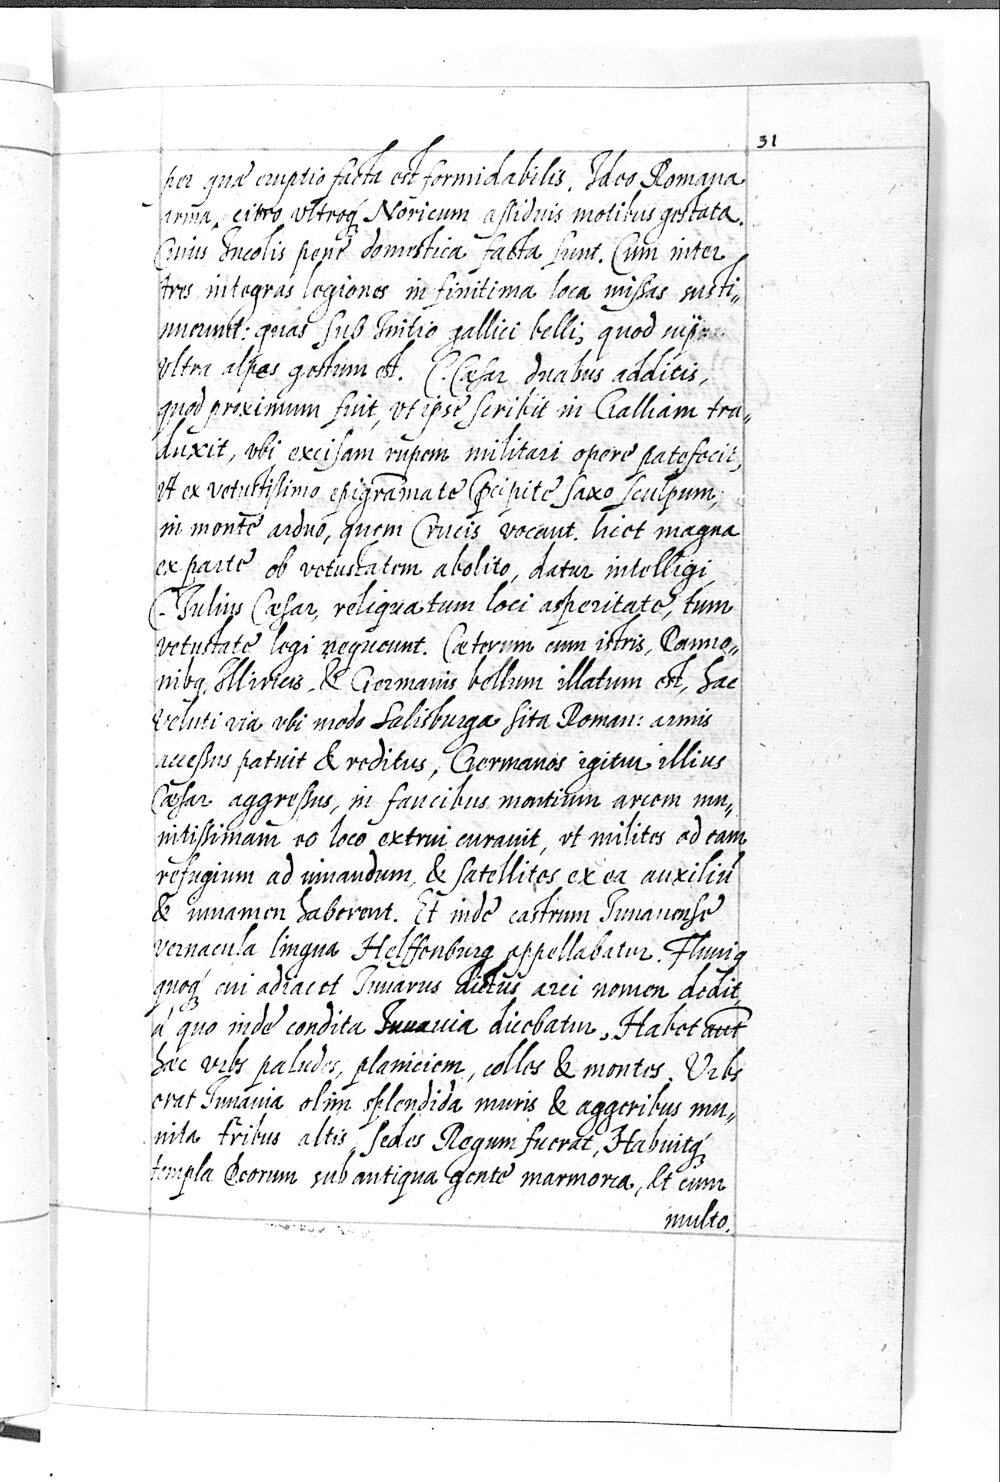 31
per quæ eruptio facta est formidabilis. Ideo Romana
arma, citro vltroq́ Noricum assiduis motibus gestata.
Cuius Incolis penè domestica facta sunt. Cum inter
tres integras legiones in finitima loca missas susti„
nuerunt: quas sub Initio gallici belli, quod
vltra alpes gestum est. C. Cæsar duabus additis,
quod proximum fuit, vt ipse scribit in Galliam tra„
duxit, vbi excisam rupem militari opere patefecit,
vt ex vetustissimo epigram̄ate saxo sculpum,
in monte arduo, quem Crucis vocant. licet magna
ex parte ob vetustatem abolito, datur intelligi
C. Julius Cæsar, reliqua tum loci asperitate, tum
vetustate legi nequeunt. Cæterum cum istris, Panno„
nibq, Illiricis, & Germanis bellum illatum est, hac
veluti via vbi modo Salisburga sita Roman: armis
accessus patuit & reditus, Germanos igitur illius
Cæsar aggressus, in faucibus montium arcem mu„
nitissimam eo loco extrui curauit, vt milites ad eam
refugium ad iuuandum, & satellites ex ea auxiliū
& iuuamen haberent. Et inde castrum Iuuauense
vernacula lingua Helffenburg appellabatur. Fluuiq
quoq́ cui adiacet Iuuarus dictus arci nomen dedit,
á quo inde condita Iuuauia dicebatur. Habet aut̄
hæc vrbs paludes, planiciem, colles & montes. Vrbs
erat Iuuauia olim splendida muris & aggeribus mu„
nita tribus altis, sedes Regum fuerat, Habuitq́
templa Deorum sub antiqua gente marmorea, Et cum
multo.